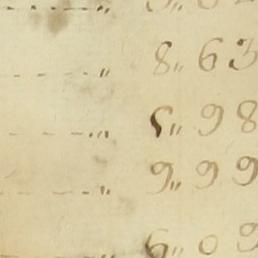 8,, 63
5,, 98
9,, 99
6,, 09